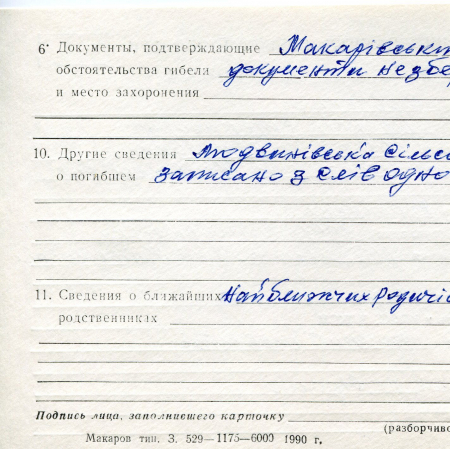 6. Документы, подтверждающие Макарівськи
обстоятельства гибели документи незбе
и место захоронения
10. Другие сведения Людвинівська сільс
о погибшем записано з слів одно
11. Сведения о ближайших Найближчих родичі
родственниках
Подпись лица, заполнившего карточку
(разборчиво
Макаров тип. З. 529—1175—6000 1990 г.